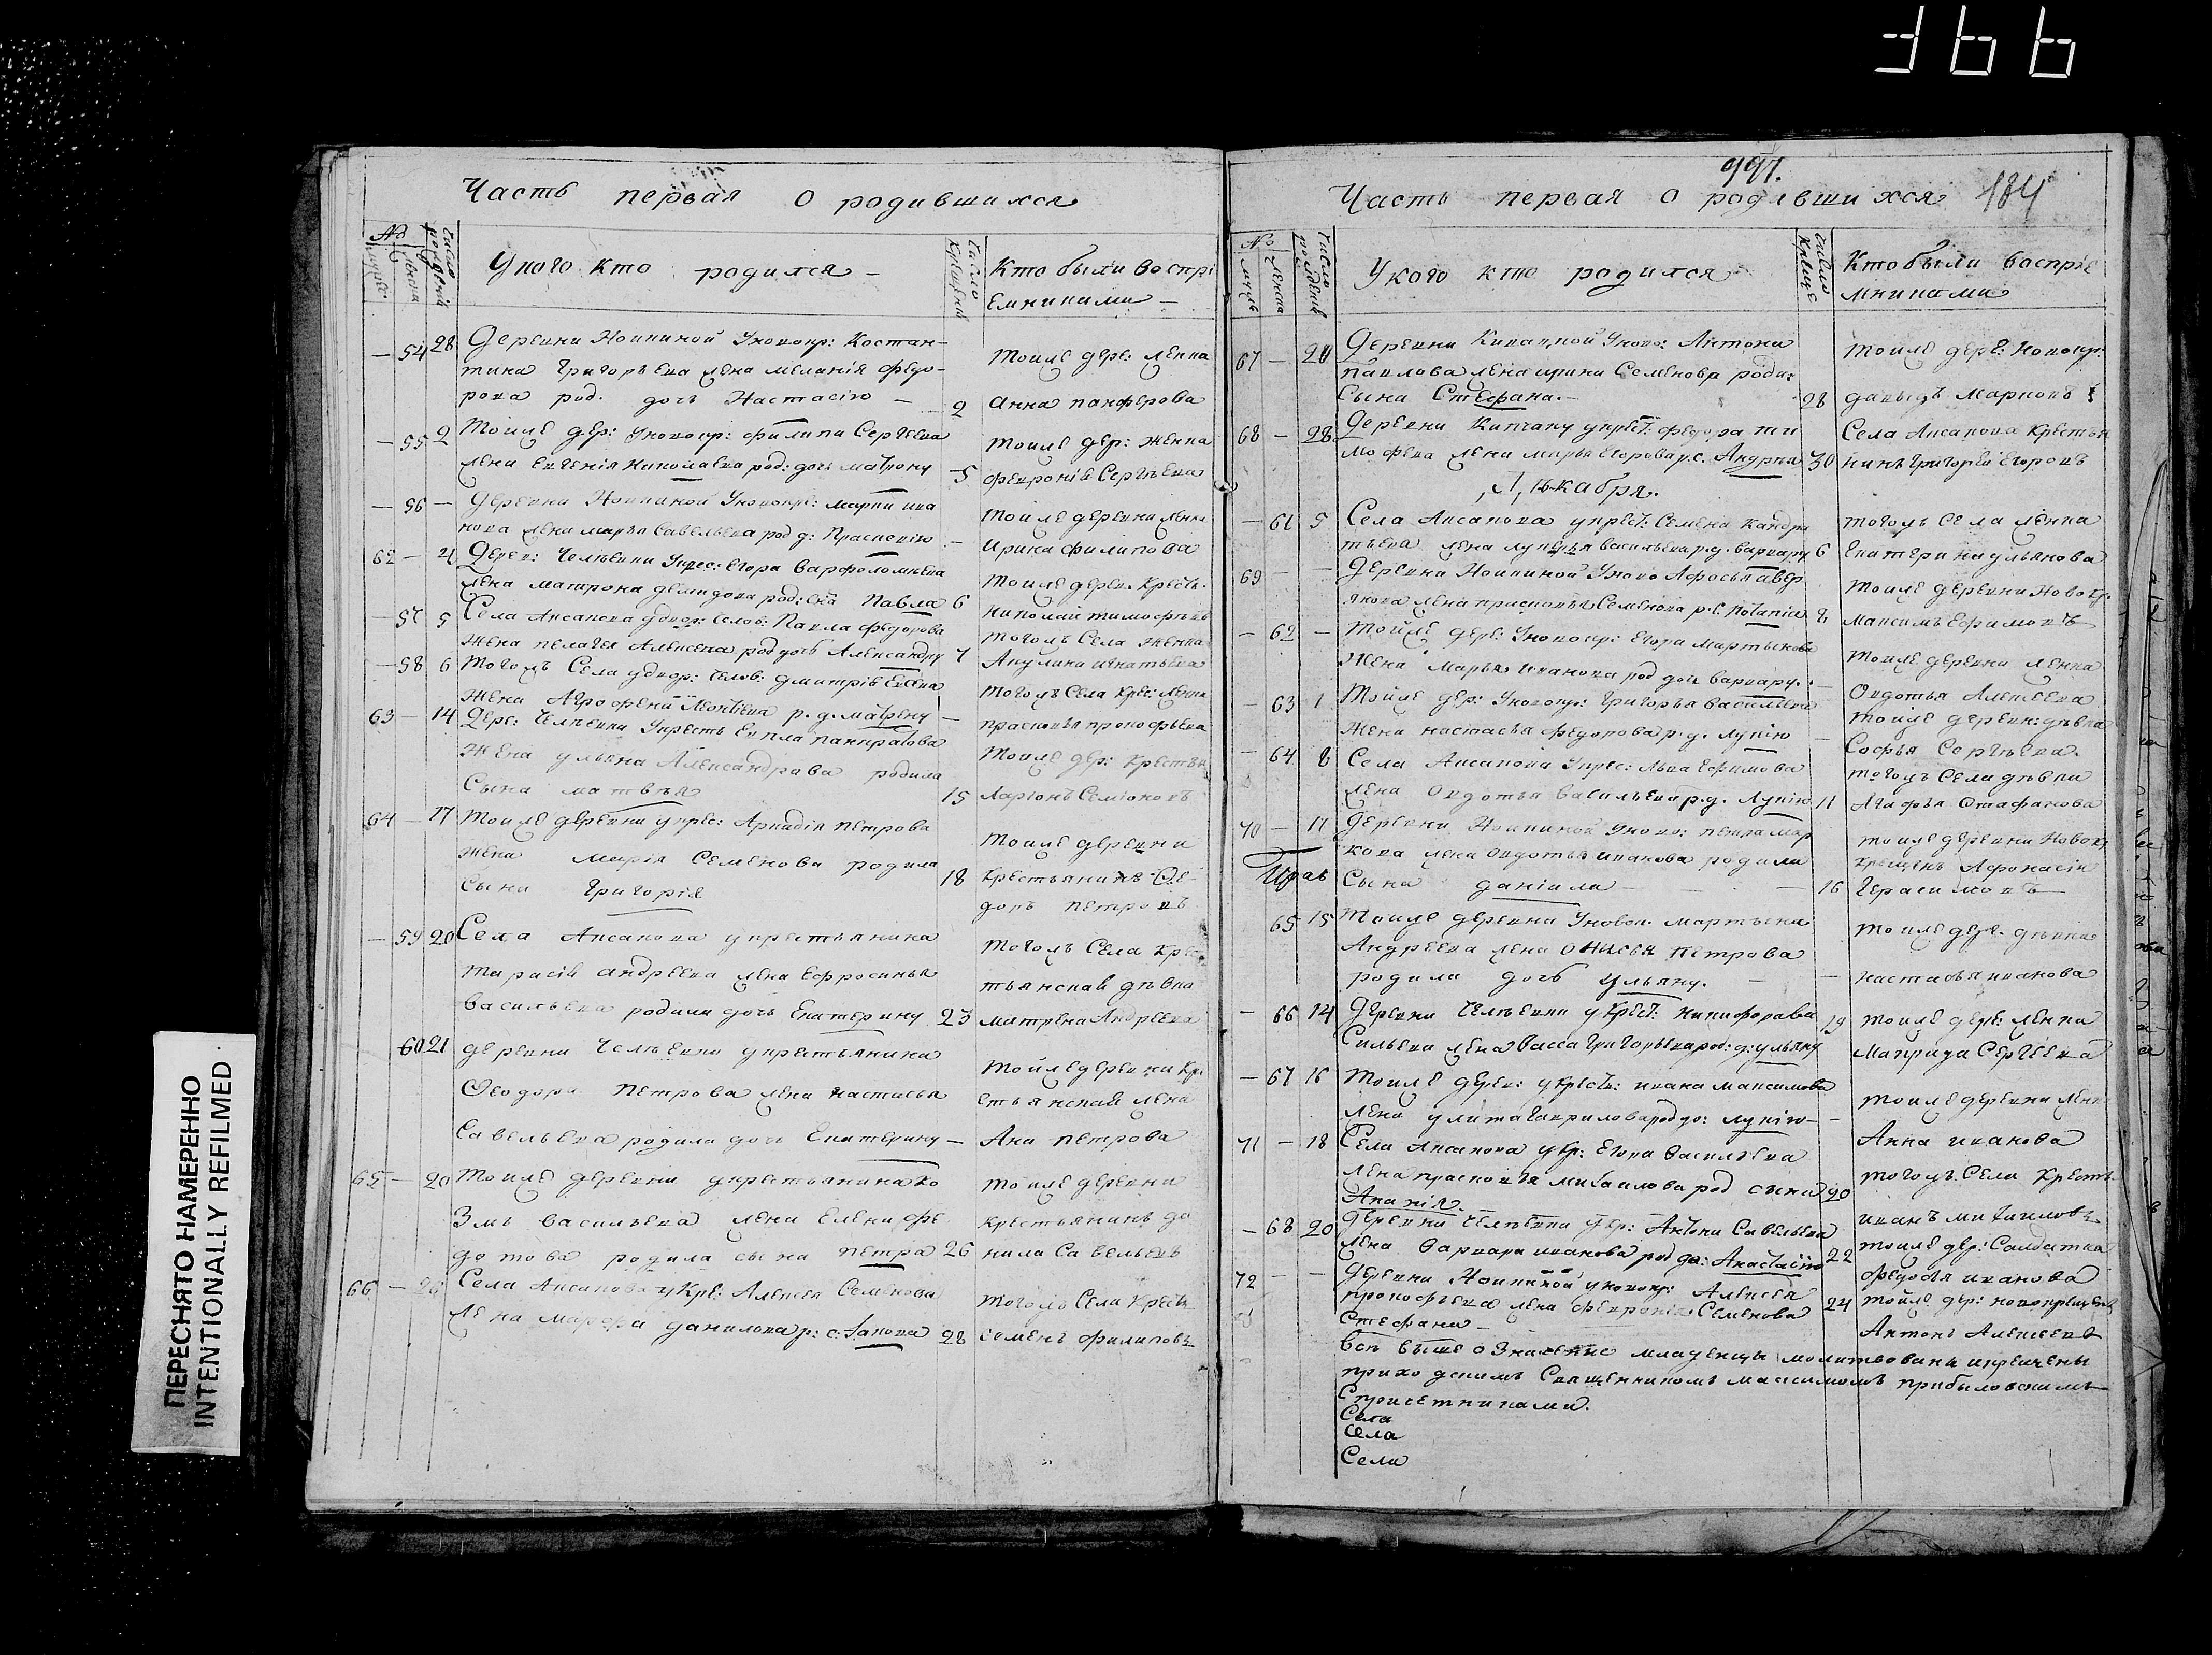 366
ПЕРЕСНЯТО НАМЕРЕННО
INTENTIONALLY REFILMED
Часть первая о родившихся
№ число рождений
У кого кто родился
Число крещения
Кто были воспрi
емниками
54 28 Деревни Ноинкиной Уновокр: Костан-
тина Григорьева жена меланiя федо-
рова род. дочь Настасiю
2
Тоиже дере: женка
Анна панферова
55 2 Тоиже дер: Уновокр: филипа Сергеева
жена Евгенiя Николаева род: дочь матрону
5
Тоиже дер: женка
феврониiя Сергѣева
56 Деревни Ноинкиной Уновокр: марки ива
нова жена марья Савельева род д: Прасковiю
Тоиже деревни женка
ирина филипова
62 4 Дерев: Челпевки Укрес: Егора Варфоломѣева
жена матрона демидова род: сна Павла
6
Тоиже дерев. Кресть.
николай тимофѣевъ
57 5 Села Аксакова Удвор: Челов: Павла федорова
жена пелагея Алексеева род дочь Александру
7
Тогожъ Села женка
Акулина игнатьева
58 6 Тогожъ Села удвор: челов: дмитрiя
жена Агрофена Леонтьева р. д. матрену
Тогожъ Села крес: женка
прасковья прокофьева
63 14 Дере: Челпевки Укресть Евпла панкратова
жена ульяна Александрова родила
Сына матвѣя
15
Тоиже дер: крестьян
Ларiонъ Семiоновъ
64 17 Тоиже деревни укрес: Аркадiя петрова
жена марiя Семенова родила
Сына Григорiя
18
Тоиже деревни
крестьянинъ Фе-
доръ петровъ
59 20 Села Аксакова укрестьянина
Тарасiя андреева жена Ефросинья
васильева родила дочь Екатерину
23
Тогожъ Села кре
тьянская дѣвка
матрена Андреева
60 21 деревни Челпевки укрестьянина
Феодора петрова жена настасья
Савельева родила дочь Екатерину
Тойже деревни кре
стьянская жена
Ана петрова
65 20 Тоиже деревни укрестьянина ко
змы васильева жена Елена фе
дотова родила сына петра
26
тоиже деревни
крестьянинъ да
нила Савельевъ
66 26 Села Аксакова укре: Алексея Семенова
жена марфа данилова р: с: Iакова
28
Тогожъ Села кресть
семенъ филиповъ
997.
184
Часть первая о родiвшихся
№ число рождений
У кого кто родился
Число
Кто были воспрiе
мниками
67 20 Деревни Кивацкой Уново: Антона
павлова жена ирина Семенова роди:
Сына Стефана.
28
тоиже дере: новокр:
давыдъ марковъ
68 28 Деревни Кипчаку укрест: федора ти
мофеева жена марья Егорова р. с. Андрея
30
Села Аксакова Крестьян
нинъ Григорей Егоровъ
Декабря.
61 5 Села Аксакова укрест: Семена Кандра
тьева жена лукерья васильева р. д. варвару
6
тогожъ села женка
Екатерина ульянова
69 Деревни Ноинкиной Уново Афосья авер
янова жена прасковья Семенова р. с. потапiя
8
Тоиже деревни Новокр.
максимъ Ефимовъ
62 Тойже дере: Уновокр: Егора мартынова
жена марья иванова род дочь варвару.
Тоиже деревни женка
Овдотья Алексеева
63 1 Тойже дер: Уновокр: Григорья васильева
жена настасья федорова р. д. лукiю
Тоиже деревн: дѣвка
Софья Сергѣева.
64 8 Села Аксакова Укрес: льва Ефимова
жена Овдотья васильева р. д. Лукiю
11
тогожъ Села дѣвка
Агафья Стафанова
70 11 Деревни Ноинкиной Уново: петра мар
кова жена овдотья иванова родила
Сына данiила
16
тоиже деревни Новокр
крещенъ Афонасiи
Герасимовъ
65 15 Тоиже деревни Уновок. мартына
Андреева жена Онисья петрова
родила дочь ульяну.
Тоиже дере. дѣвка
настасья иванова
66 14 Деревни Челпевки укрест: никифорава
Сильева жена васса григорьева род: д: ульяну
19
тоиже дере: женка
макрида Сергеева
67 16 Тоиже дерев: укресть: ивана максимова
жена улита гаврилова род до: лукiю
тоиже деревни женк
Анна иванова
71 18 Села Аксакова укр: Егора васильева
жена прасковья михаилова род сына
Ананiя.
20
тогожъ Села Кресть
иванъ михаиловъ
68 20 деревни Челпевки укр: Антона Савельева
жена варвара иванова род до: Анастасiю
22
тоиже дер: Салдатка
федосья иванова
72 деревни Ноинкиной уновокр: Алексея
прокофьева жена феврониiя Семенова
Стефана
24
тоиже дер: новокрещенъ
Антонъ Алексеевъ
Всѣ выше означенные младенцы молитвованы икрещены
приходскимъ Священникомъ максимомъ прибыловскимъ
Спричетниками.
Села
Села
Села